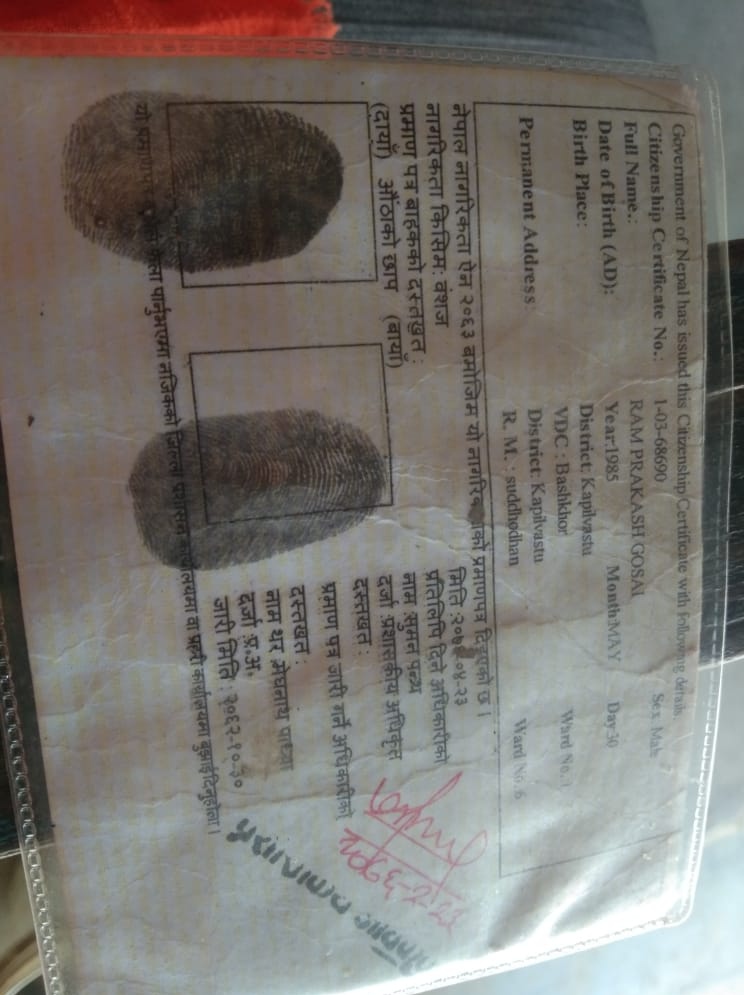 Government of Nepal has issued this Citizenship Certificate with following details
Citizenship Certificate No.: 1-03-68690 Sex: Male
Full Name.: RAM PRAKASH GOSAI
Date of Birth (AD): Year:1985 Month:MAY Day30
Birth Place: District: Kapilvastu
VDC : Bashkhor Ward No.:
Permanent Address: District: Kapilvastu
R. M. : suddhodhan Ward No.:6
नेपाल नागरिकता ऐन २०६३ बमोजिम यो प्रमाणपत्र दिइएको छ।
नागरिकता किसिम: वंशज
प्रमाण पत्र बाहकको दस्तखुत:
(दायाँ) औंठाको छाप (बायाँ)
मिति
प्रतिलिपि दिने अधिकारीको
नाम :सुमन
दर्जा :प्रशासकीय अधिकृत
दस्तखत :
प्रमाण पत्र जारी गर्ने अधिकारीको
दस्तखत :
नाम थर मेघनाथ पाध्या
दर्जा प्र.अ.
जारी मिति : २०६२-१०-३०
यो पार्नुभएमा नजिकको जिल्ला प्रशासन कार्यालयमा वा प्रहरी कार्यालयमा बुझाईदिनुहोला।